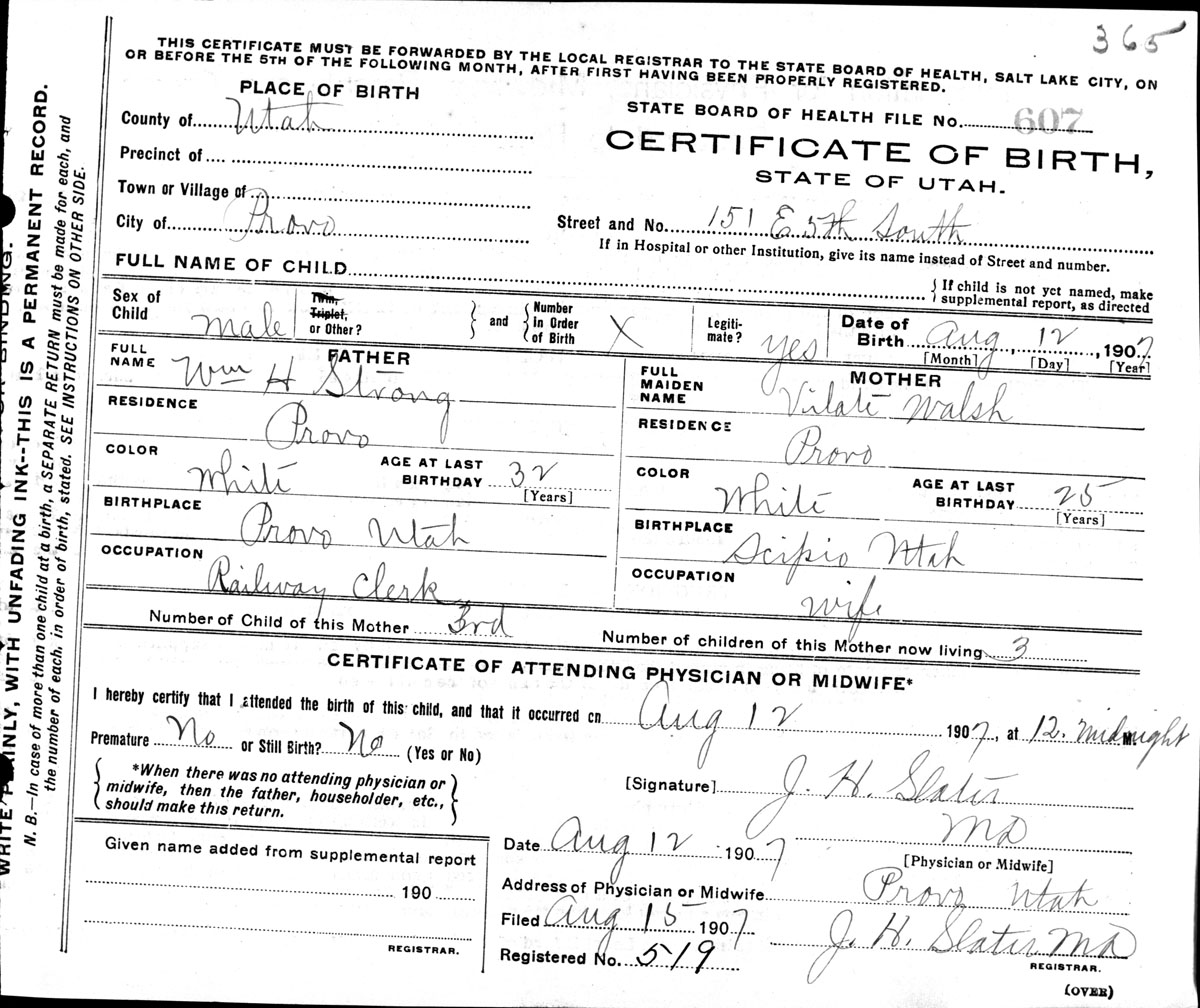 365
THIS CERTIFICATE MUST BE FORWARDED BY THE LOCAL REGISTRAR TO THE STATE BOARD OF HEALTH, SALT LAKE CITY, ON
OR BEFORE THE 5TH OF THE FOLLOWING MONTH, AFTER FIRST HAVING BEEN PROPERLY REGISTERED.
PLACE OF BIRTH
County of Utah
Precinct of
Town or Village of
City of Provo
STATE BOARD OF HEALTH FILE No. 607
CERTIFICATE OF BIRTH,
STATE OF UTAH.
Street and No. 151 E 5th South
If in Hospital or other Institution, give its name instead of Street and number.
FULL NAME OF CHILD
If child is not yet named, make
supplemental report, as directed
Sex of
Child Male
Twin,
Triplet,
or Other?
and
Number
in Order
of Birth X
Legiti-
mate? yes
Date of
Birth Aug, 12, 1907
[Month] [Day] [Year]
FATHER
FULL
NAME Wm H Strong
RESIDENCE
Provo
COLOR
White
AGE AT LAST
BIRTHDAY 32
[Years]
BIRTHPLACE
Provo Utah
OCCUPATION
Railway Clerk
MOTHER
FULL
MAIDEN
NAME Vilate Walsh
RESIDENCE
Provo
COLOR
White
AGE AT LAST
BIRTHDAY 25
[Years]
BIRTHPLACE
Scipio Utah
OCCUPATION
Wife
Number of Child of this Mother 3rd
Number of children of this Mother now living 3
CERTIFICATE OF ATTENDING PHYSICIAN OR MIDWIFE*
I hereby certify that I attended the birth of this child, and that it occurred on Aug 12 1907, at 12. Midnight
Premature No or Still Birth? No (Yes or No)
*When there was no attending physician or
midwife, then the father, householder, etc.,
should make this return.
[Signature] J. H. Slater
MD
[Physician or Midwife]
Given name added from supplemental report
190
REGISTRAR.
Date Aug 12 1907
Address of Physician or Midwife Provo Utah
Filed Aug 15 1907
J. H. Slater MD
REGISTRAR.
Registered No. 519
(OVER)
WRITE PLAINLY, WITH UNFADING INK--THIS IS A PERMANENT RECORD.
N. B.—In case of more than one child at a birth, a SEPARATE RETURN must be made for each, and
the number of each, in order of birth, stated. SEE INSTRUCTIONS ON OTHER SIDE.